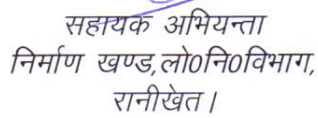 सहायक अभियन्ता
निर्माण खण्ड,लो0नि0विभाग,
रानीखेत।